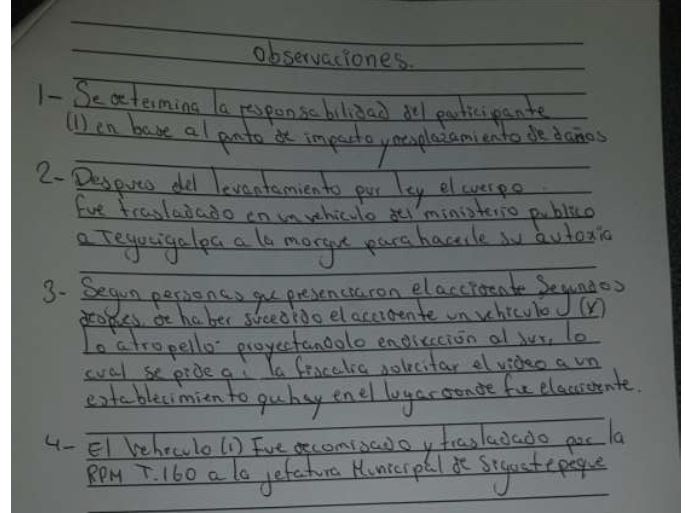 observaciones.
1- Se determina la responsabilidad del participante
(1) en base al punto de impacto y desplazamiento de daños
2- Despues del levantamiento por ley el cuerpo.
fue trasladado en un vehiculo del ministerio publico
a Tegucigalpa a la morgue para hacerle su autoxia
3- Segun personas que presenciaron el accidente Segundos
despues de haber sucedido el accidente un vehiculo (Y)
lo atropello proyectandolo en dirección al sur, lo
cual se pide a la fiscalia solicitar el video a un
establecimiento que hay en el lugar donde fue el accidente.
4- El Veheculo (1) Fue decomisado y trasladado por la
RPM T.160 a la jefatura Municipal de Siguatepeque